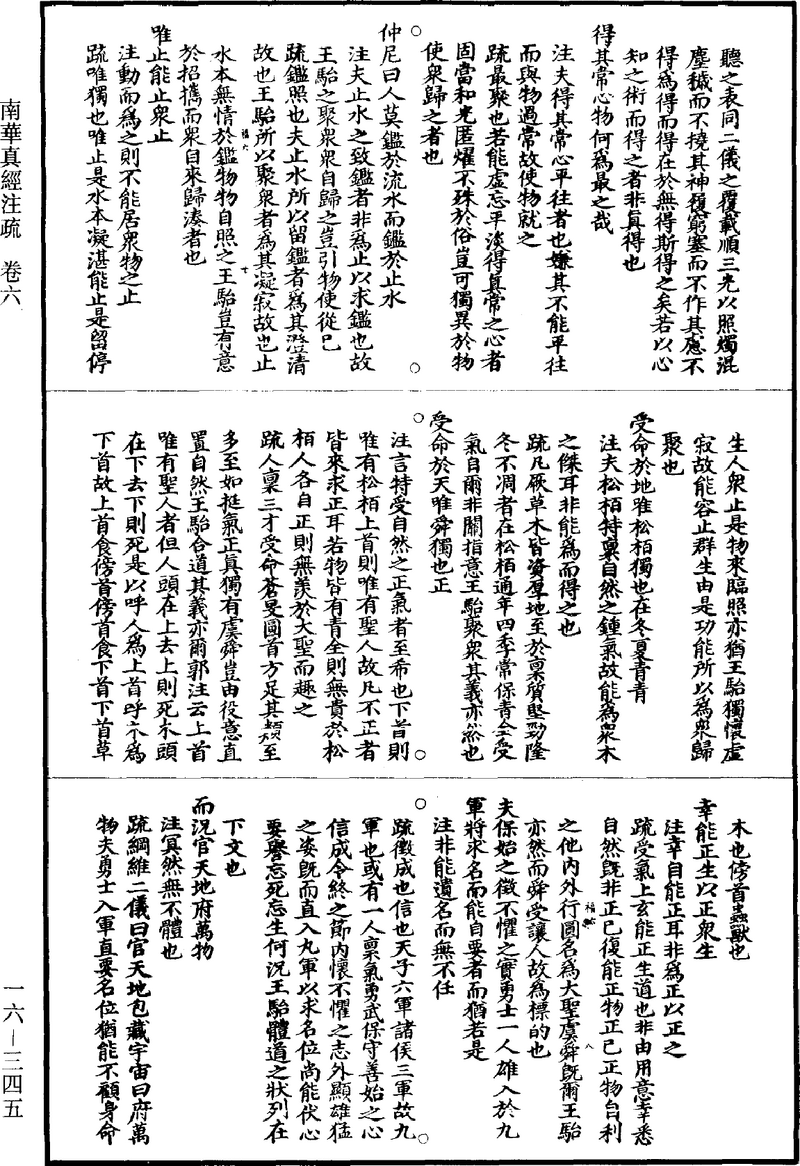 南華真經注疏　卷六
一六—三四五
聽之表同二儀之覆載順三光以照燭混
塵穢而不撓其神履窮塞而不作其慮不
得為得而得在於無得斯得之矣若以心
知之術而得之者非真得也
得其常心物何為最之哉
注夫得其常心平往者也嫌其不能平往
而與物過常故使物就之
疏最聚也若能虛忘平淡得真常之心者
固當和光匿耀不殊於俗豈可獨異於物
使衆歸之者也
仲尼曰人莫鑑於流水而鑑於止水
注夫止水之致鑑者非為止以求鑑也故
王駘之聚衆衆自歸之豈引物使從已
疏鑑照也夫止水所以留鑑者為其澄清
故也王駘所以聚衆者為其凝寂故也止
水本無情於鑑物物自照之王駘豈有意
於招攜而衆自來歸湊者也
唯止能止衆止
注動而為之則不能居衆物之止
疏唯獨也唯止是水本凝湛能止是留停
生人衆止是物來臨照亦猶王駘獨懷虛
寂故能容止群生由是功能所以為衆歸
聚也
受命於地唯松栢獨也在冬夏青青
注夫松栢特稟自然之鍾氣故能為衆木
之傑耳非能為而得之也
疏凡厥草木皆資厚地至於稟質堅勁隆
冬不凋者在松栢通年四季常保青全受
氣自爾非關指意王駘聚衆其義亦然也
受命於天唯舜獨也正
注言特受自然之正氣者至希也下首則
唯有松栢上首則唯有聖人故凡不正者
皆來求正耳若物皆有青全則無貴於松
栢人各自正則無羨於大聖而趣之
疏人稟三才受命蒼旻圓首方足其類至
多至如挺氣正真獨有虞舜豈由役意直
置自然王駘合道其義亦爾郭注云上首
唯有聖人者但人頭在上去上則死木頭
在下去下則死是以呼人為上首呼木為
下首故上首食傍首傍首食下首下首草
木也傍首蟲獸也
幸能正生以正衆生
注幸自能正耳非為正以正之
疏受氣上玄能正生道也非由用意幸悉
自然既非正已復能正物正已正物自利
之他內外行圓名為大聖虞舜既爾王駘
亦然而舜受讓人故為標的也
夫保始之徵不懼之實勇士一人雄入於九
軍將求名而能自要者而猶若是
注非能遺名而無不任
疏徵成也信也天子六軍諸侯三軍故九
軍也或有一人稟氣勇武保守善始之心
信成令終之節內懷不懼之志外顯雄猛
之姿既而直入九軍以求名位尚能伏心
要譽忘死忘生何況王駘體道之狀列在
下文也
而況官天地府萬物
注冥然無不體也
疏綱維二儀曰官天地包藏宇宙曰府萬
物夫勇士入軍直要名位猶能不顧身命